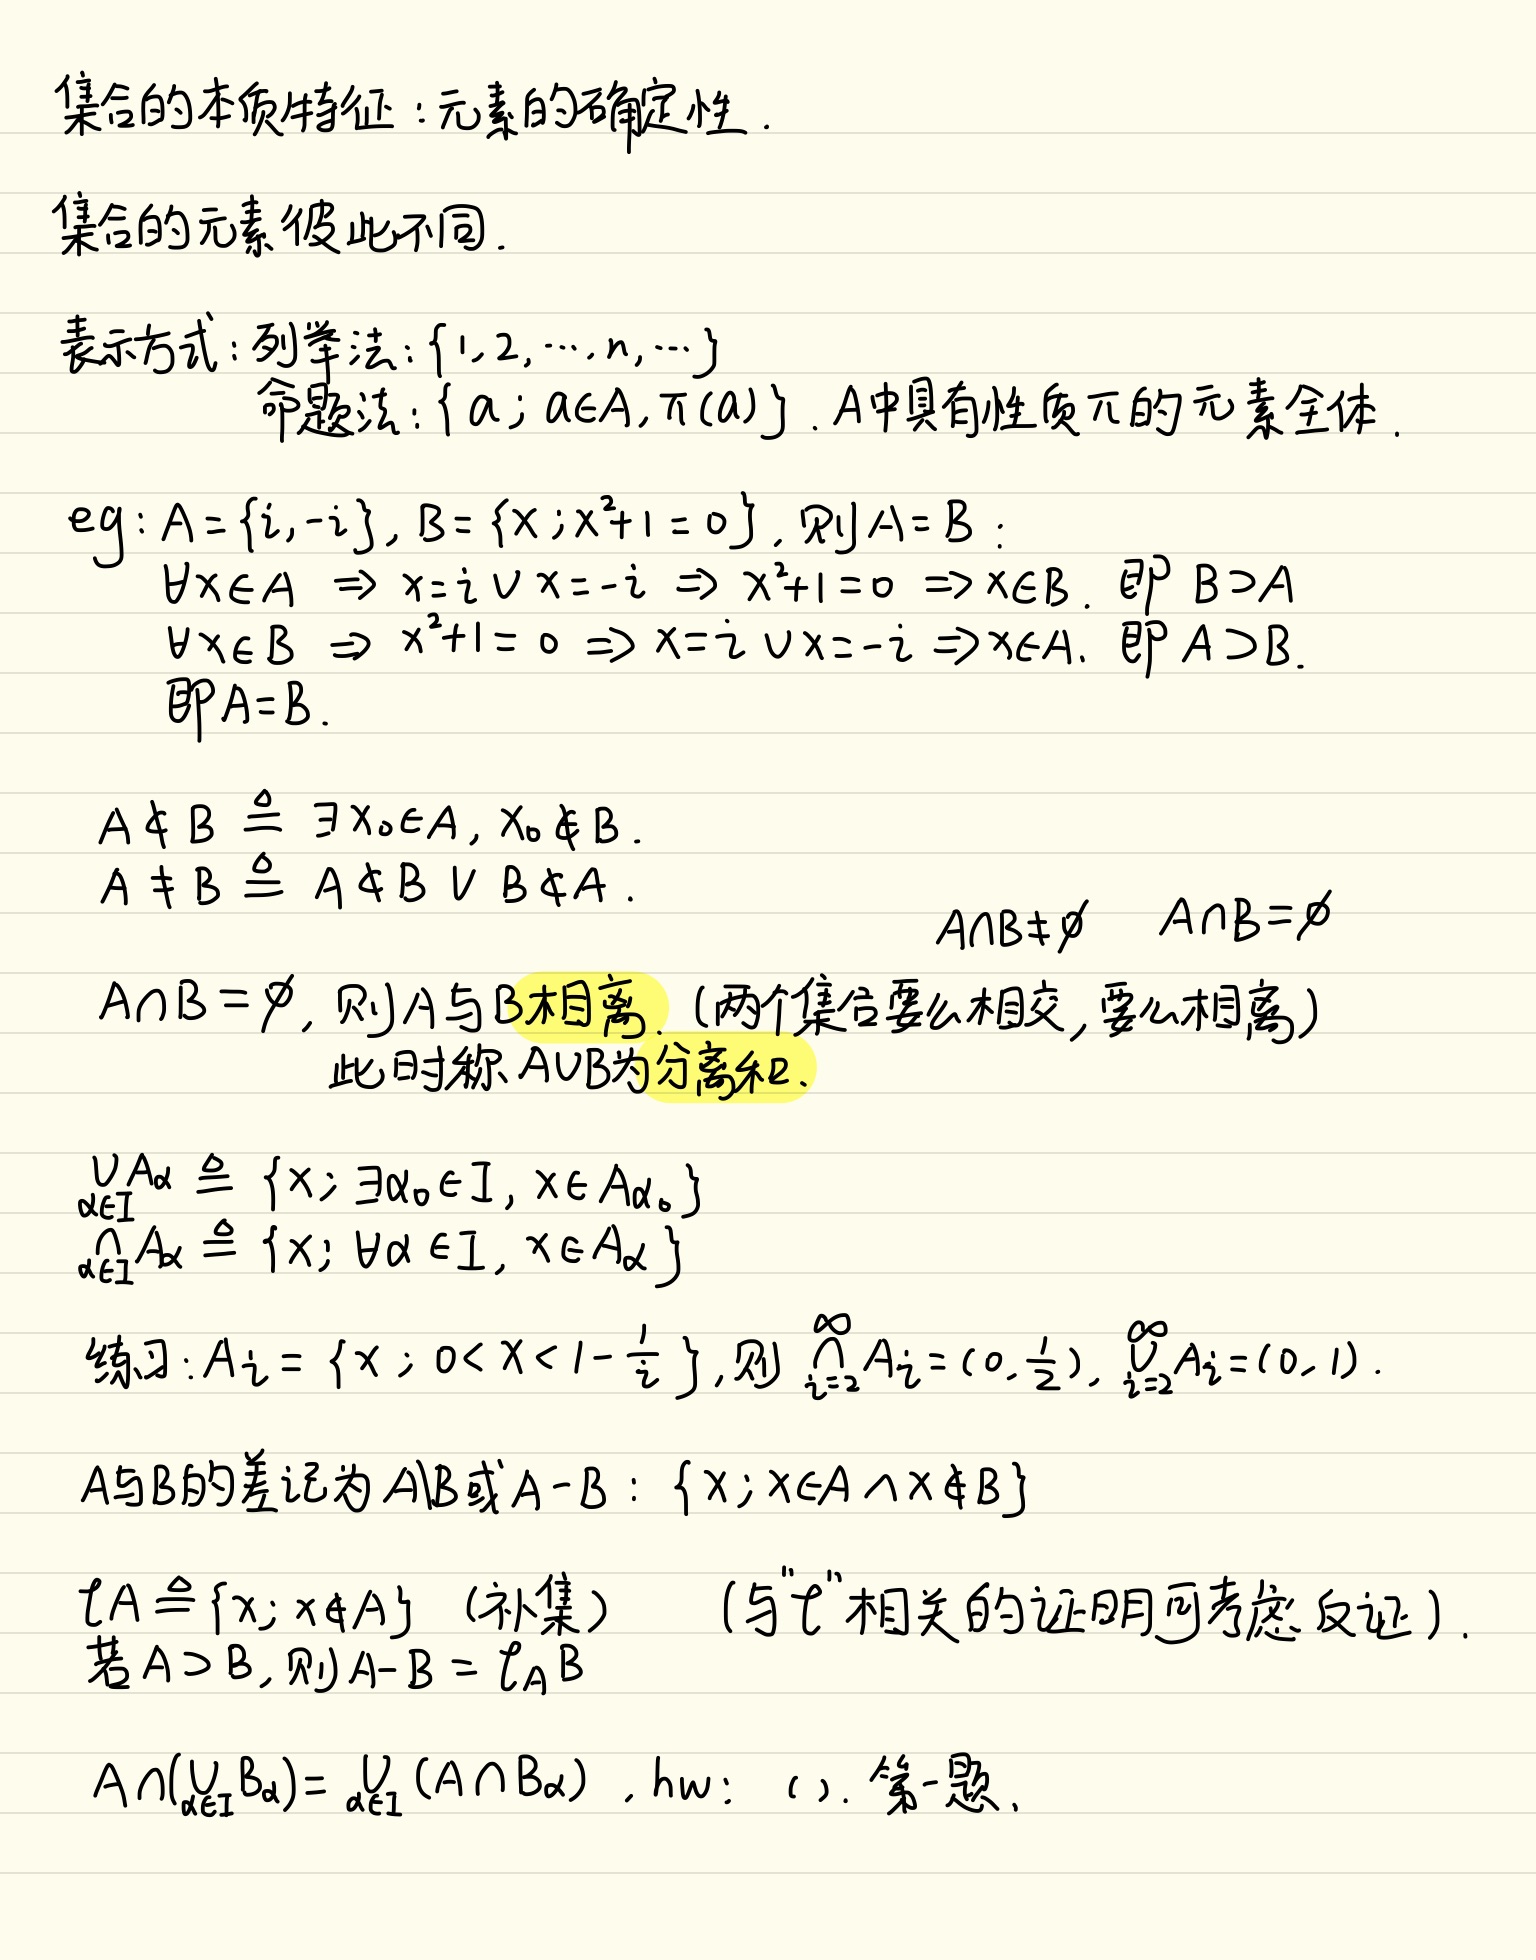 集合的本质特征：元素的确定性.
集合的元素彼此不同.
表示方式：列举法：{1, 2, …, n, …}
命题法：{a; a∈A, π(a)}. A中具有性质π的元素全体.
eg: A = {i, -i}, B = {x; x²+1 = 0}, 则A = B：
∀x∈A ⇒ x = i ∨ x = -i ⇒ x²+1 = 0 ⇒ x∈B. 即 B⊃A
∀x∈B ⇒ x²+1 = 0 ⇒ x = i ∨ x = -i ⇒ x∈A. 即 A⊃B.
即A = B.
A ⊄ B ≜ ∃x₀∈A, x₀∉B.
A ≠ B ≜ A ⊄ B ∨ B ⊄ A.
A∩B ≠ ∅ A∩B = ∅
A∩B = ∅, 则A与B相离. (两个集合要么相交, 要么相离)
此时称A∪B为分离和.
∪_{α∈I} A_α ≜ {x; ∃α₀∈I, x∈A_{α₀}}
∩_{α∈I} A_α ≜ {x; ∀α∈I, x∈A_α}
练习：A_i = {x; 0 < x < 1 - 1/i}, 则 ∩_{i=2}^∞ A_i = (0, 1/2), ∪_{i=2}^∞ A_i = (0, 1).
A与B的差记为A\B或A-B：{x; x∈A ∧ x∉B}
∁A ≜ {x; x∉A} (补集) (与"∁"相关的证明可考虑反证).
若A⊃B, 则A-B = ∁_A B
A∩(∪_{α∈I} B_α) = ∪_{α∈I} (A∩B_α). hw: ( ). 第一题.